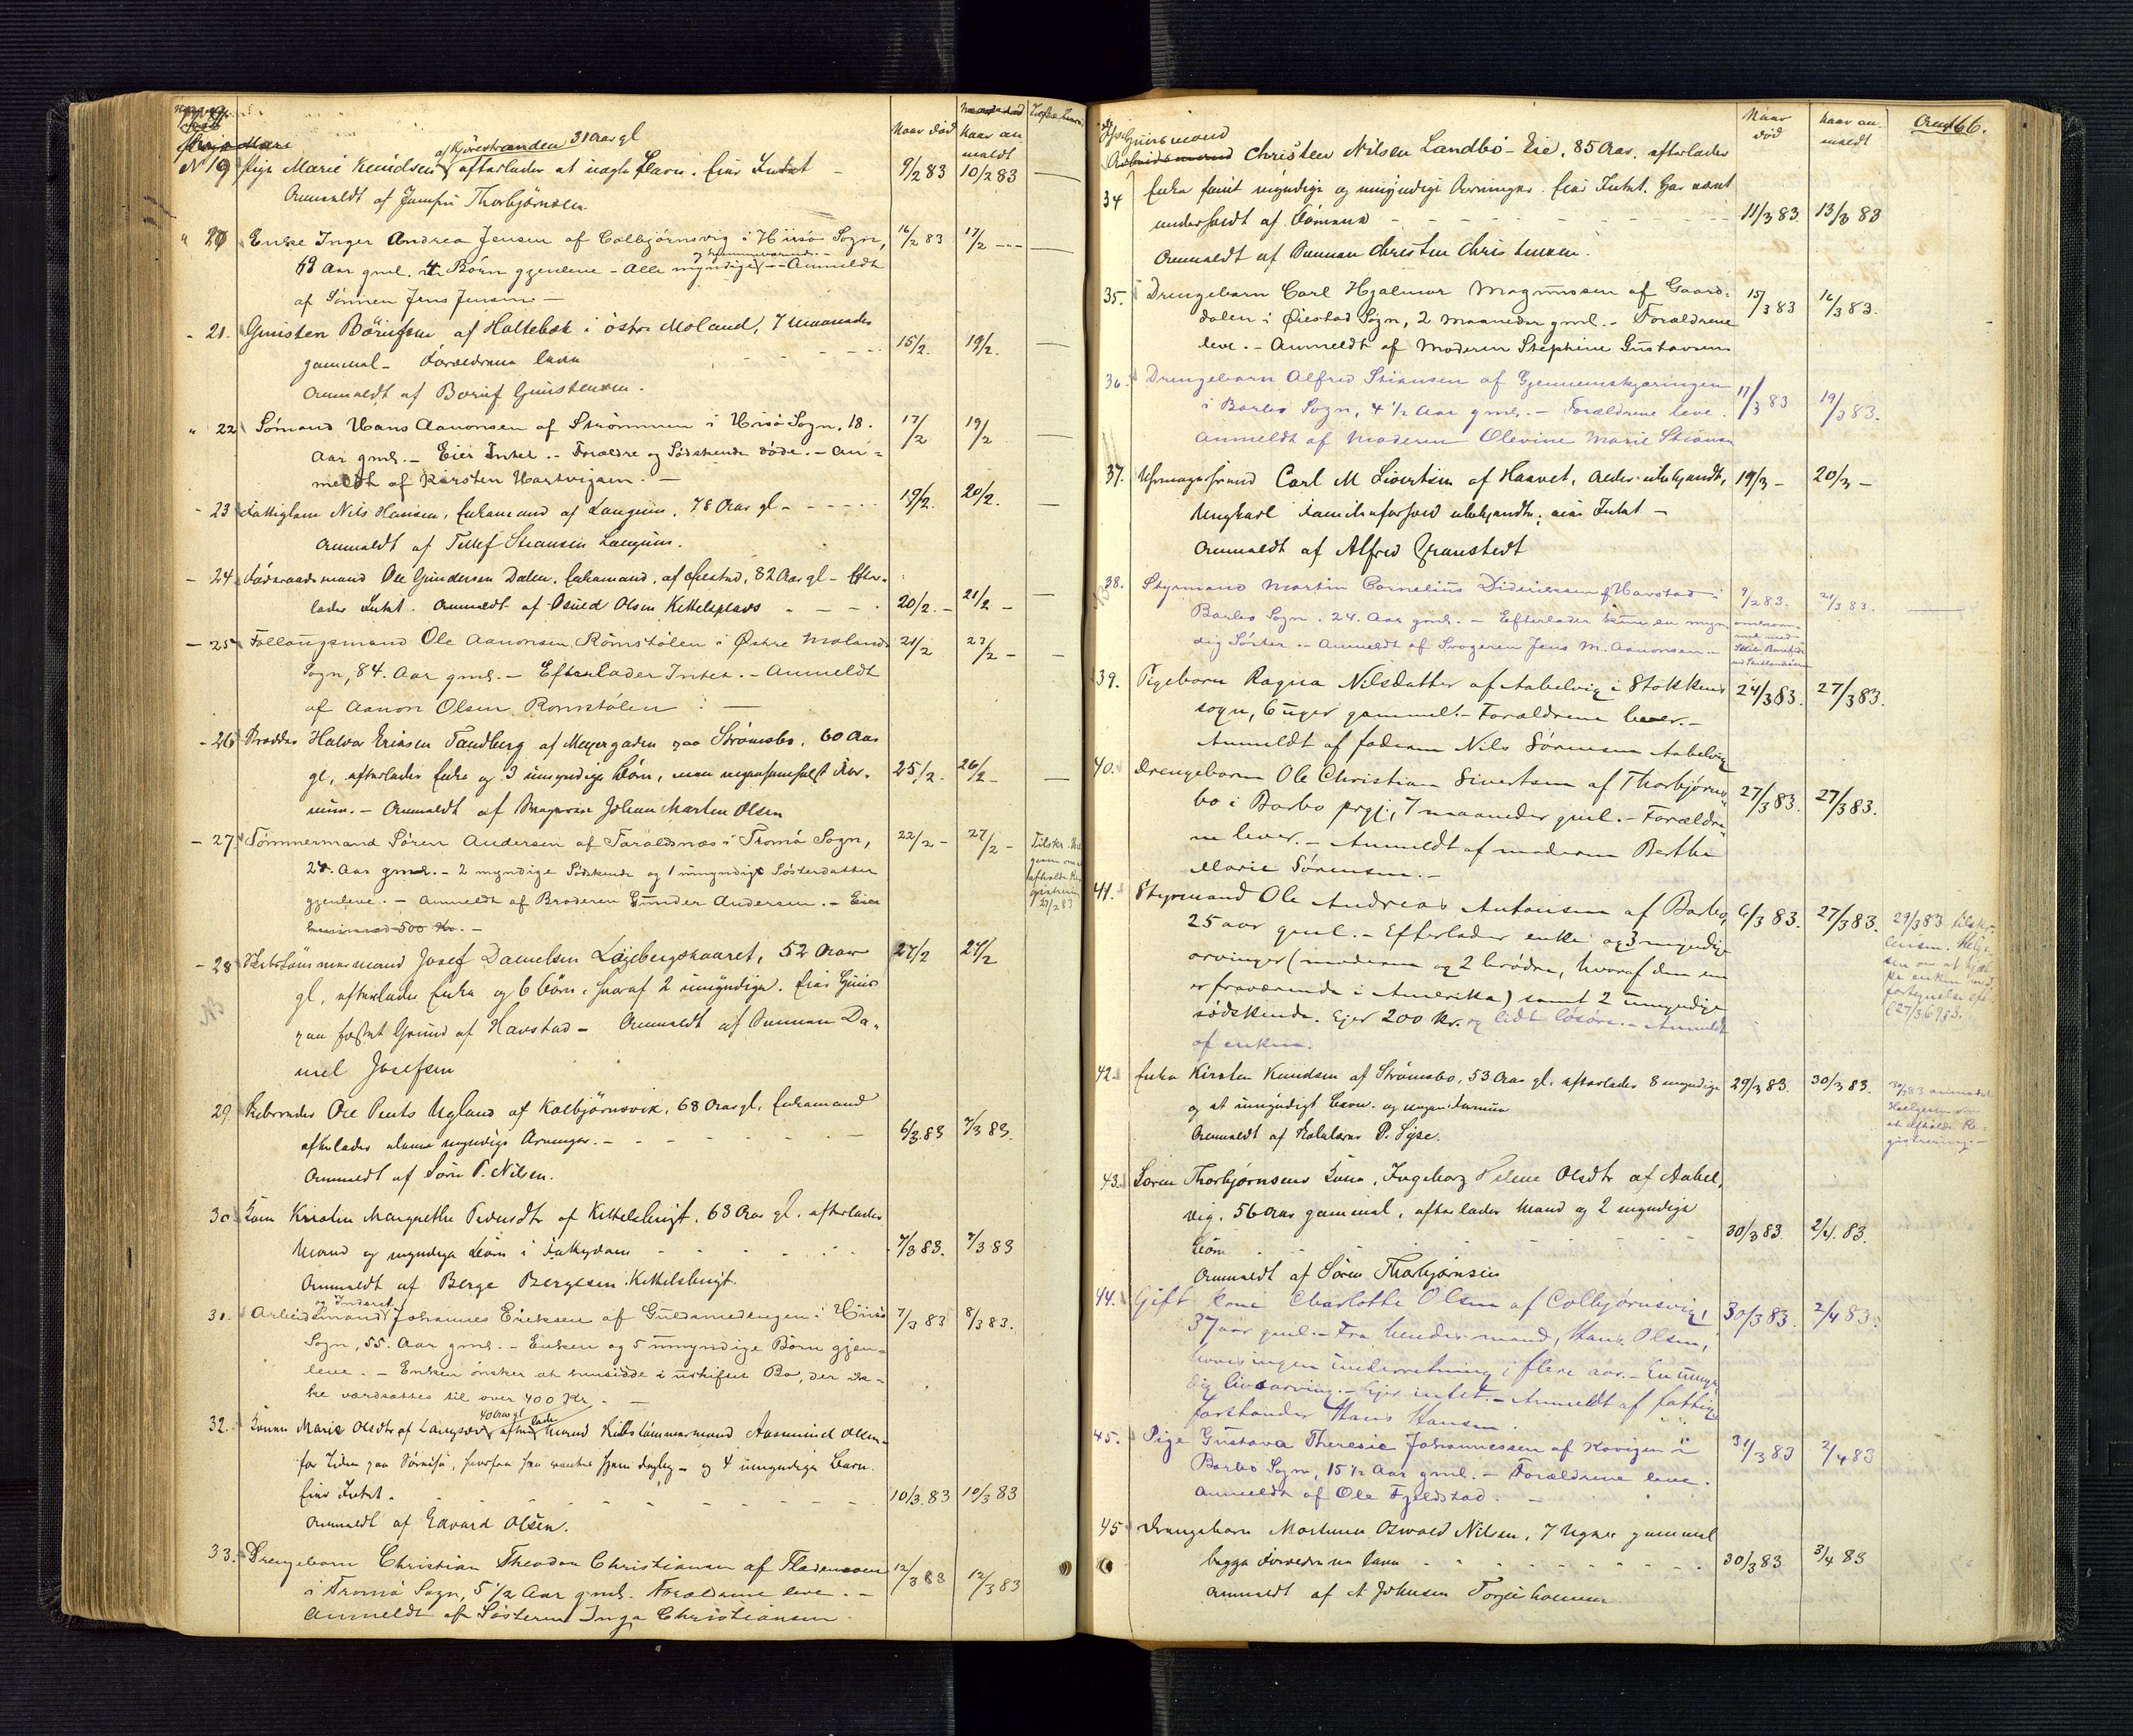 Naar død
Naar an
meldt
af Kjørestranden 31 Aar gl
No 19 Pige Marie Knudsen efterlader et uægte Barn. Eier Intet - 9/2 83 10/2 83 —
Anmeldt af Jomfru Thorbjørnsen
" 20 Enke Inger Andrea Jensen af Colbjørnsvig i Hisø Sogn, 16/2 83 17/2 --- —
og hjemmeværende. -
69 Aar gml. 4 Børn gjenleve - Alle myndige - - Anmeldt
af Sønnen Jens Jensen —
- 21. Gunsten Børufsen af Holtebæk i østre Moland, 7 Maaneder
gammel - Forældrene leve 15/2. 19/2. —
Anmeldt af Boruf Gunstensen.
" 22 Sømand Hans Aanonsen af Strømmen i Hisø Sogn, 18. 17/2 19/2 —
Aar gml. - Eier Intet. - Forældre og Sødskende døde. - An-
meldt af Karsten Hartvigsen. —
- 23 Fattiglem Nils Hansen, Enkemand af Langum, 78 Aar gl - 19/2. 20/2. —
Anmeldt af Tellef Steansen Langum.
- 24 Føderaadsmand Ole Gundersen Dalen, Enkemand, af Øiestad, 82 Aar gl - Efter-
lader Intet. Anmeldt af Osuld Olsen Kittelsplads 20/2. - 21/2 - —
- 25 Follaugsmand Ole Aanonsen Rømstølen i Østre Molands 21/2 23/2 - —
Sogn, 84. Aar gml. - Efterlader Intet. - Anmeldt
af Aanon Olsen Romstølen : —
- 26 Halvor Eriksen Tandberg af Meyergaden paa Strømsbo, 60 Aar
gl, efterlader Enke og 3 umyndige Børn, men uegensamhulst For- 25/2. 26/2 - —
mue. - Anmeldt af Johan Martin Olsen
- 27. Tømmermand Søren Andersen af Taraldsnæs i Tromø Sogn, 22/2 - 27/2 -
24. Aar gml. - 2 myndige Sødskende og 1 umyndigt Søsterdatter
gjenleve. - Anmeldt af Broderen Gunder Andersen. - Eier
henimod 500 Kr. -
- 28 Skibstømmermand Josef Danielsen Løgebergskaaret, 52 Aar 27/2 27/2
gl, efterlader Enke og 6 Børn, hvoraf 2 umyndige. Eier Huus
paa fæstet Grund af Havstad - Anmeldt af Sønnen Da-
niel Josefsen
29. Skibsreder Ole Pents Ugland af Kolbjørnsvik, 68 Aar gl, Enkemand
efterlader alene myndige Arvinger. - 6/3 83 7/3 83.
Anmeldt af Søren P. Nilsen.
30. Kone Kirsten Margrethe Pedersdtr af Kittelsbugt, 63 Aar gl. efterlader
Mand og myndige Børn 7/3 83. 7/3 83
Anmeldt af Berge Bergesen Kittelsbugt.
31. Arbeidsmand Johannes Eriksen af Guldsmedengen i Hisø 7/3 83 8/3 83.
Sogn, 55. Aar gml. - Enken og 5 umyndige Børn gjen-
leve. - Enken ønsker at hensidde i uskiftet Bo, der ik-
ke værdsættes til over 400 Kr. —
40 Aar gl
32. Konen Marie Olsdtr af Langsæv efterlader Mand Skibstømmermand Aasmund Olsen
for Tiden paa hvorfra han ventes hjem daglig - og 4 umyndige Børn.
Eier Intet. 10/3. 83 10/3 83
Anmeldt af Edvard Olsen.
33. Drengebarn Christian Theodor Christiansen af Fladen 12/3 83 12/3 83
i Tromø Sogn, 5 1/2 Aar gml. Forældrene leve. -
Anmeldt af Søsteren Inga Christiansen.
Naar død
Naar an-
meldt
Anm
66.
Huusmand
Christen Nilsen Landbø-Eie, 85 Aar, efterlader
34 Enke samt myndige og umyndige Arvinger. Eier Intet. Har været
understøttet af 11/3 83. 13/3 83
Anmeldt af Sønnen Christen Christensen.
35. Drengebarn Carl Hjalmar Magnussen af Gaard- 15/3 83 16/3 83.
dalen i Øiestad Sogn, 2 Maaneder gml. - Forældrene
leve. - Anmeldt af Moderen Stephine Gustavsen
36. Drengebarn Alfred Stiansen af Gjennemskjæringen 17/3 83 19/3 83.
i Barbo Sogn, 4 1/2 Aar gml. - Forældrene leve.
Anmeldt af Moderen Olevine Marie Stiansen
37. Uhrmagersvend Carl M Sivertsen af Haavet, Alder ubekjendt, 19/3 - 20/3 -
Ungkarl Familieforhold ubekjendte, eier Intet -
Anmeldt af Alfred Granstedt
38. Styrmand Martin Cornelius Dideriksen af Havstad i 9/2 83. 21/3 83. —
Barbo Sogn. 24. Aar gml. - Efterlader kun en myn- omkom-
dig Søster. - Anmeldt af Svogeren Jens M. Aanonsen. - met med
39. Pigebarn Ragna Nilsdatter af Aabelvig i Stokken 24/3 83. 27/3 83.
sogn, 6 uger gammel. - Forældrene lever. -
Anmeldt af faderen Nils Sørensen Aabelvig
40. Drengebarn Ole Christian Sivertsen af Thorbjørns-
bo i Barbo prgj, 7 maaneder gml. - Forældre- 27/3 83. 27/3 83.
ne lever. - Anmeldt af moderen Berthe
Marie Sørensen. -
41. Styrmand Ole Andreas Antonsen af Barbo, 6/3 83. 27/3 83. 29/3 83
25 aar gml. - Efterlader enke og 3 myndige
arvinger (moderen og 2 brødre, hvoraf den ene
er fraværende i Amerika) samt 2 umyndige
sødskende. Ejer 200 Kr. og lidt løsøre. - Anmeldt
af enken.
42. Enke Kirsten Knudsen af Strømsbo, 53 Aar gl. efterlader 8 myndige 29/3 83. 30/3 83. 30/3 83 anmodet
og et umyndigt Barn. og ingen Formue Helgesen om
Anmeldt af P. Syse. at afholde Re-
gistrering. -
43. Søren Thorbjørnsens Kone, Ingeborg Helene Olsdtr af Aabel-
vig. 56 Aar gammel, efterlader Mand og 2 myndige
Børn 30/3 83 2/4. 83.
Anmeldt af Søren Thorbjørnsen
44. Gift kone Charlotte Olsen af Colbjørnsvig, 30/3 83. 2/4 83.
37 aar gml. - Fra hendes mand, Hans Olsen,
haves ingen underretning i flere aar. - En umyn-
dig livsarving. - Ejer intet. - Anmeldt af fattig-
forstander Hans Hansen.
45. Pige Gustava Theresie Johannessen af Kovigen i 31/3 83 2/4 83
Barbo Sogn, 15 1/2 Aar gml. - Forældrene leve.
Anmeldt af Ole Fjeldstad. -
45 Drengebarn Martinus Oswald Nilsen, 7 Uger gammel
begge Forældrene leve 30/3 83 3/4 83
Anmeldt af A Johnsen Torjusholmen